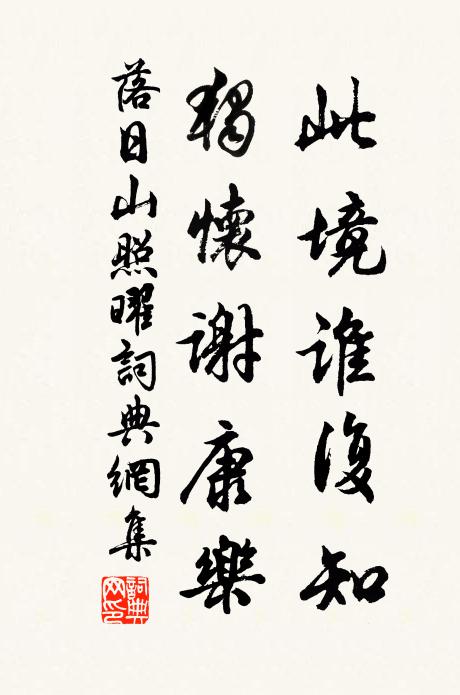 此境誰復知
獨懷謝康樂
落日山照曜詞典網集
詞典網印